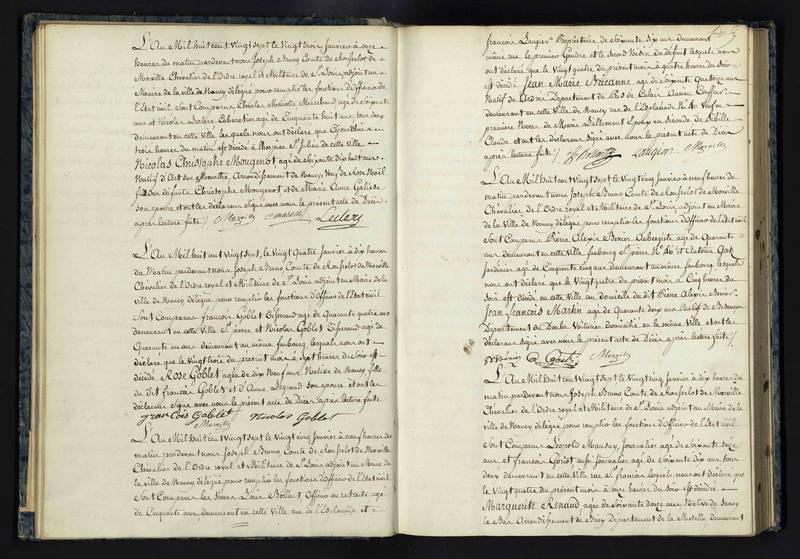 L'An Mil huit cent vingt sept le vingt trois Janvier à onze
heures du matin pardevant nous Joseph Bruno Comte de Rousselot de
Morville Chevalier de l'Ordre royal et Militaire de St Louis adjoint au
Maire de la ville de Nancy délégué pour remplir les fonctions d'Officier de
l'Etat civil Sont Comparus Charles Marchand age de soixante
ans et Nicolas Leclere Cabaretier age de Cinquante huit ans tous deux
demeurant en cette Ville lesquels nous ont déclaré que
trois heures du matin est décédé à l'hospice St Julien de cette Ville
Nicolas Christophe Mougenot age de soixante dix huit ans
Natif d'Art sur Meurthe, Arrondissement de Nancy, Veuf de Rose Noël
fils de défunts Christophe Mougenot et de Marie Anne
son epouse et ont les déclarans signé avec nous le présent acte de Décès
après lecture faite / Morville Leclere
L'An Mil huit cent Vingt Sept, le Vingt Quatre Janvier à dix heures
du Matin pardevant nous Joseph Bruno Comte de Rousselot de Morville
Chevalier de l'Ordre royal et Militaire de St Louis adjoint au Maire de la
ville de Nancy délégué pour remplir les fonctions d'Officier de l'Etat civil
Sont Comparus françois Goblet Tisserand age de Quarante quatre ans
demeurant en cette Ville St pierre et Nicolas Goblet Tisserand age de
Quarante un ans demeurant au même faubourg, lesquels nous ont
déclaré que le vingt trois du présent mois à sept heures du soir est
décédé Rose Goblet agée de dix Neuf ans Native de Nancy, fille
du dit françois Goblet et d'Anne Legrand son epouse et ont les
déclarans signé avec nous le présent acte de Décès après lecture faite
francois Goblet Nicolas Goblet
Morville
L'An Mil huit cent Vingt Sept le Vingt Cinq Janvier à neuf heures du
matin pardevant nous Joseph Bruno Comte de Rousselot de Morville
Chevalier de l'Ordre royal et Militaire de St Louis adjoint au Maire de
la ville de Nancy délégué pour remplir les fonctions d'Officier de l'Etat civil
Sont Comparus les Sieurs Louis Bollart Officier en retraite age
de Cinquante ans demeurant en cette Ville rue de l'Esplanade et
françois Laugier Propriétaire de soixante dix ans demeurant
même rue le premier Gendre et le second Voisin du défunt lesquels nous
ont déclaré que le vingt quatre du présent mois à quatre heures du soir
est décédé Jean Marie Bricanne age de soixante Quatorze ans
Natif de Ardres Département du Pas de Calais Ancien Coiffeur
demeurant en cette Ville de Nancy rue de l'Esplanade No 40 Veuf en
premières Noces de Marie Lallement Epoux en seconde de Sibille
Claude et ont les déclarans signé avec nous le présent acte de Décès
après lecture faite / Bollart Laugier Morville
L'An Mil huit cent Vingt Sept le Vingt Cinq Janvier à neuf heures du
matin pardevant nous Joseph Bruno Comte de Rousselot de Morville
Chevalier de l'Ordre royal et Militaire de St Louis adjoint au Maire
de la Ville de Nancy délégué pour remplir les fonctions d'Officier de l'Etat civil
Sont Comparus Pierre Alexis Benier Aubergiste age de Quarante
ans demeurant en cette Ville faubourg St pierre No 46 et Antoine
Jardinier age de Cinquante cinq ans demeurant au même faubourg lesquels
nous ont déclaré que le Vingt quatre du présent mois à Cinq heures du
soir est décédé en cette Ville au domicile du dit Pierre Alexis Benier
Jean Francois Martin age de Quarante deux ans Natif de Besançon
Département du Doubs Voiturier domicilié en la même Ville et ont les
déclarans signé avec nous le présent acte de Décès après lecture faite /
Morville
L'An Mil huit cent Vingt Sept le Vingt Cinq Janvier à dix heures du
matin pardevant nous Joseph Bruno Comte de Rousselot de Morville
Chevalier de l'Ordre royal et Militaire de St Louis adjoint au Maire de la
ville de Nancy délégué pour remplir les fonctions d'Officier de l'Etat civil
Sont Comparus Léopold Maussey Journalier age de soixante onze
ans et francois Goriot aussi journalier age de soixante dix ans tous
deux demeurant en cette Ville rue St francois lesquels nous ont déclaré que
le Vingt quatre du présent mois à onze heures du soir est décédée
Marguerite Renaud agée de soixante douze ans Native de
le Bas Arrondissement de Briey Département de la Moselle demeurant